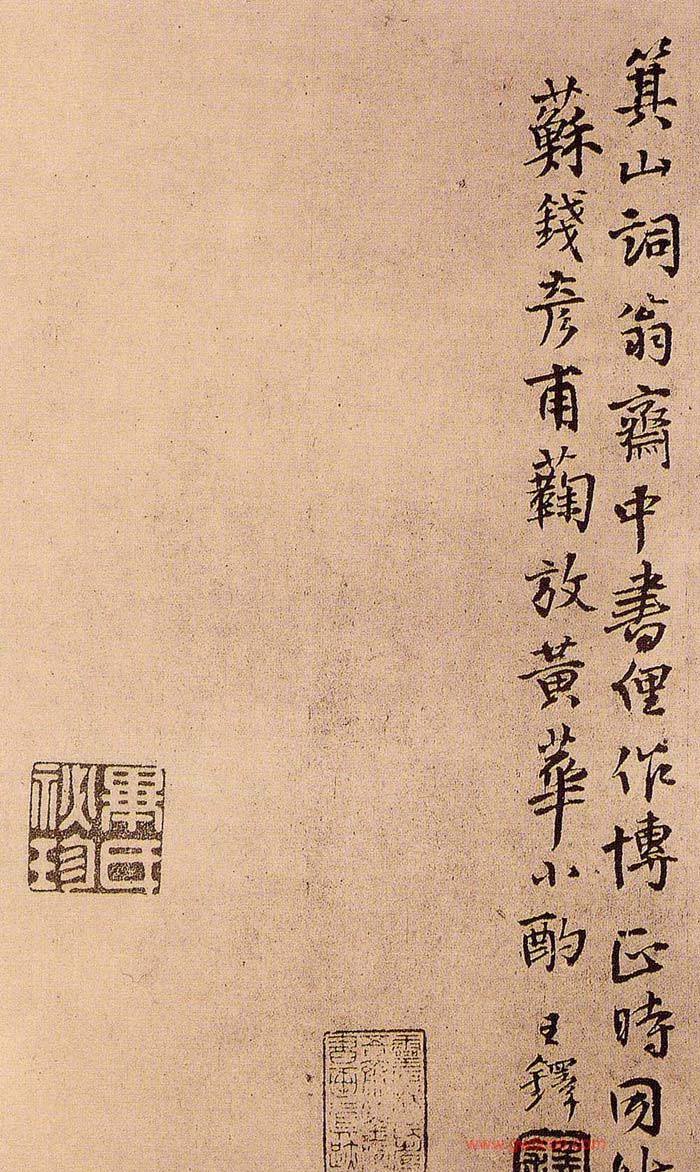 箕山詞翁齋中書俚作博正時同
蘇錢彥甫蘜放黃華小酌
王鐸